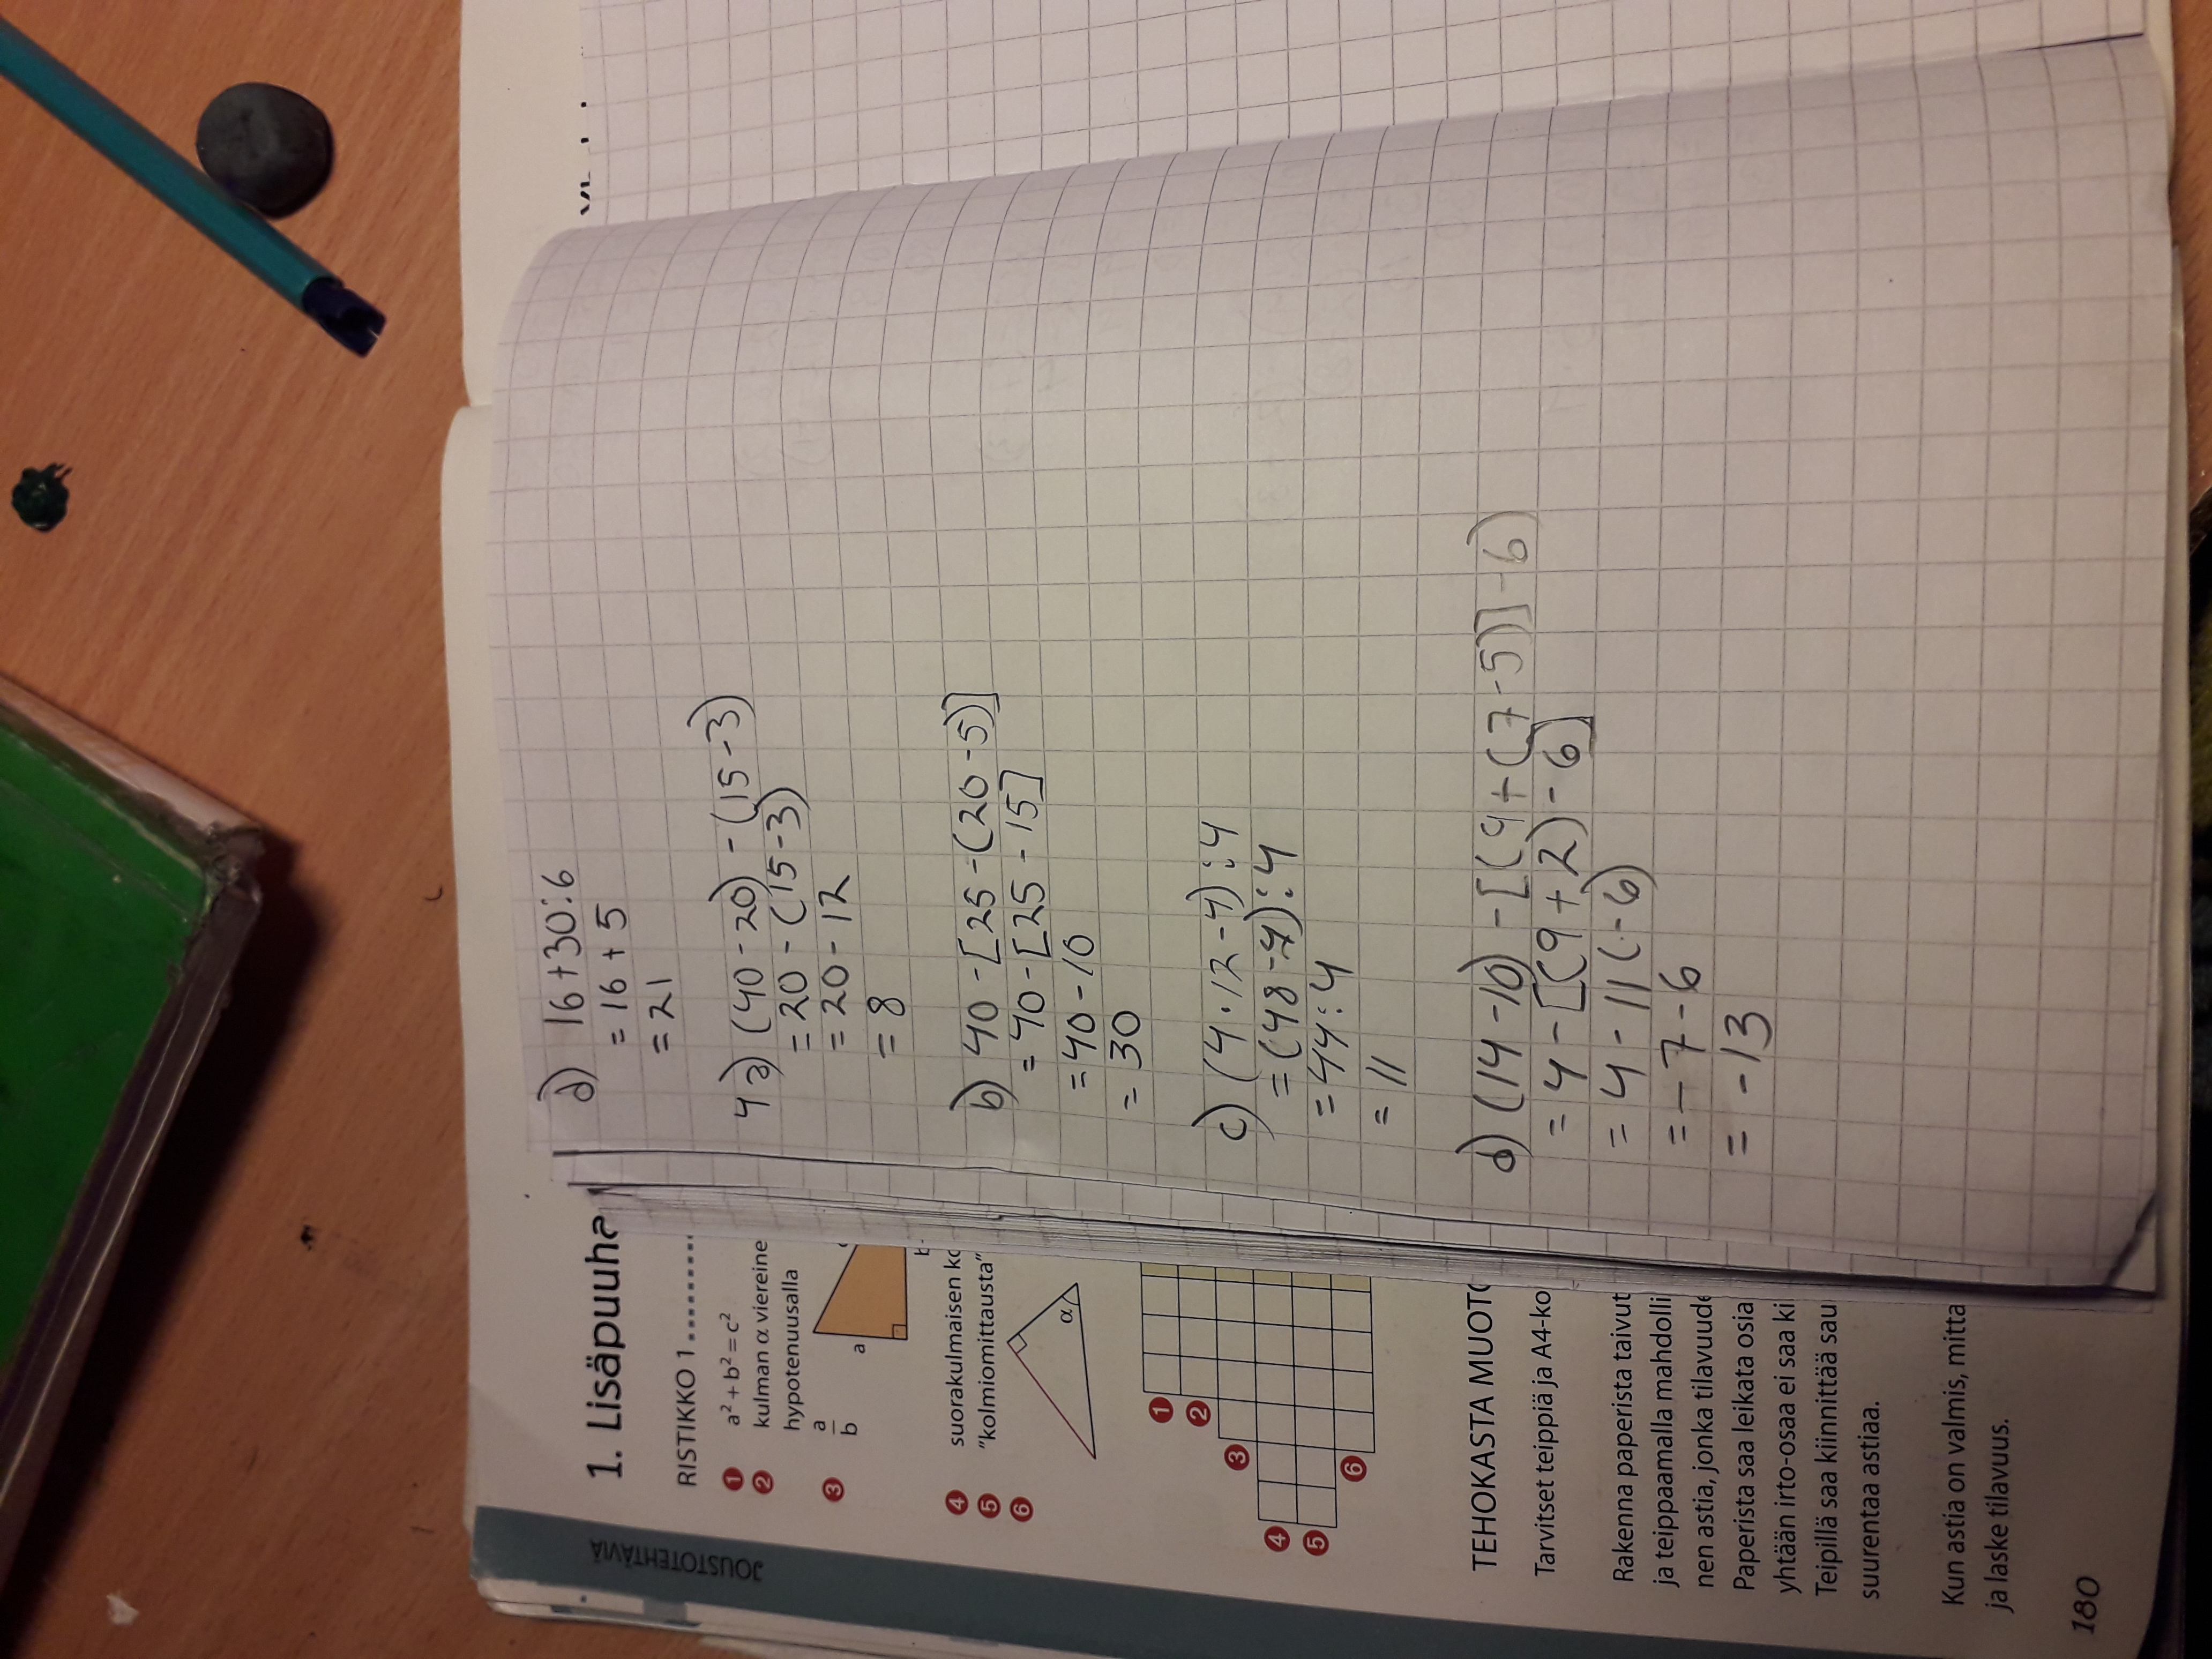 d) 16+30:6
= 16+5
= 21
4a) (40-20)-(15-3)
= 20-(15-3)
= 20-12
= 8
b) 40-[25-(20-5)]
= 40-[25-15]
= 40-10
= 30
c) (4·12-4):4
= (48-4):4
= 44:4
= 11
d) (14-10)-[(9+(7-5)]-6)
= 4-[(9+2)-6]
= 4-11(-6)
= -7-6
= -13
JOUSTOTEHTÄVIÄ
1. Lisäpuuha
RISTIKKO 1........
1 a² + b² = c²
2 kulman α viereine
hypotenuusalla
3 a
b
a
b
4 suorakulmaisen ko
5 "kolmiomittausta"
6
α
1
2
3
4
5
6
TEHOKASTA MUOTO
Tarvitset teippiä ja A4-ko
Rakenna paperista taivut
ja teippaamalla mahdolli
nen astia, jonka tilavuude
Paperista saa leikata osia
yhtään irto-osaa ei saa ki
Teipillä saa kiinnittää sau
suurentaa astiaa.
Kun astia on valmis, mitta
ja laske tilavuus.
180